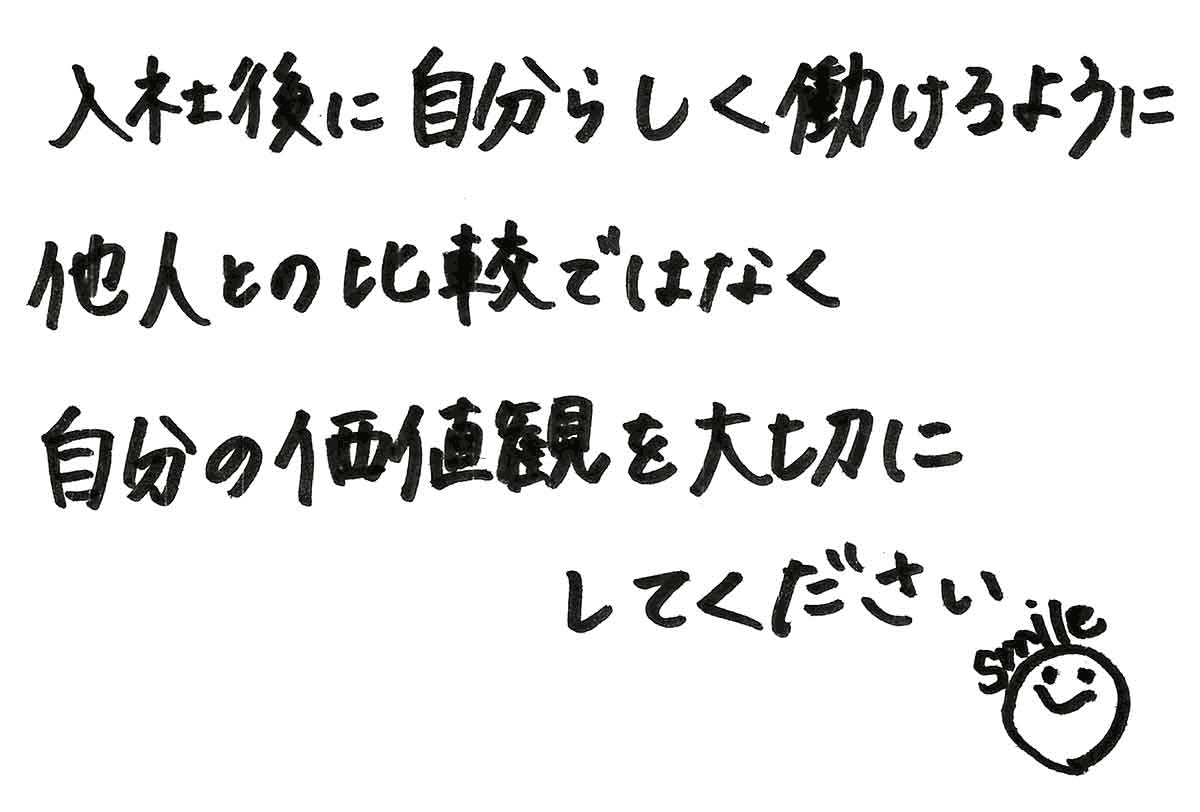 入社後に自分らしく働けるように
他人との比較ではなく
自分の価値観を大切に
してください
smile